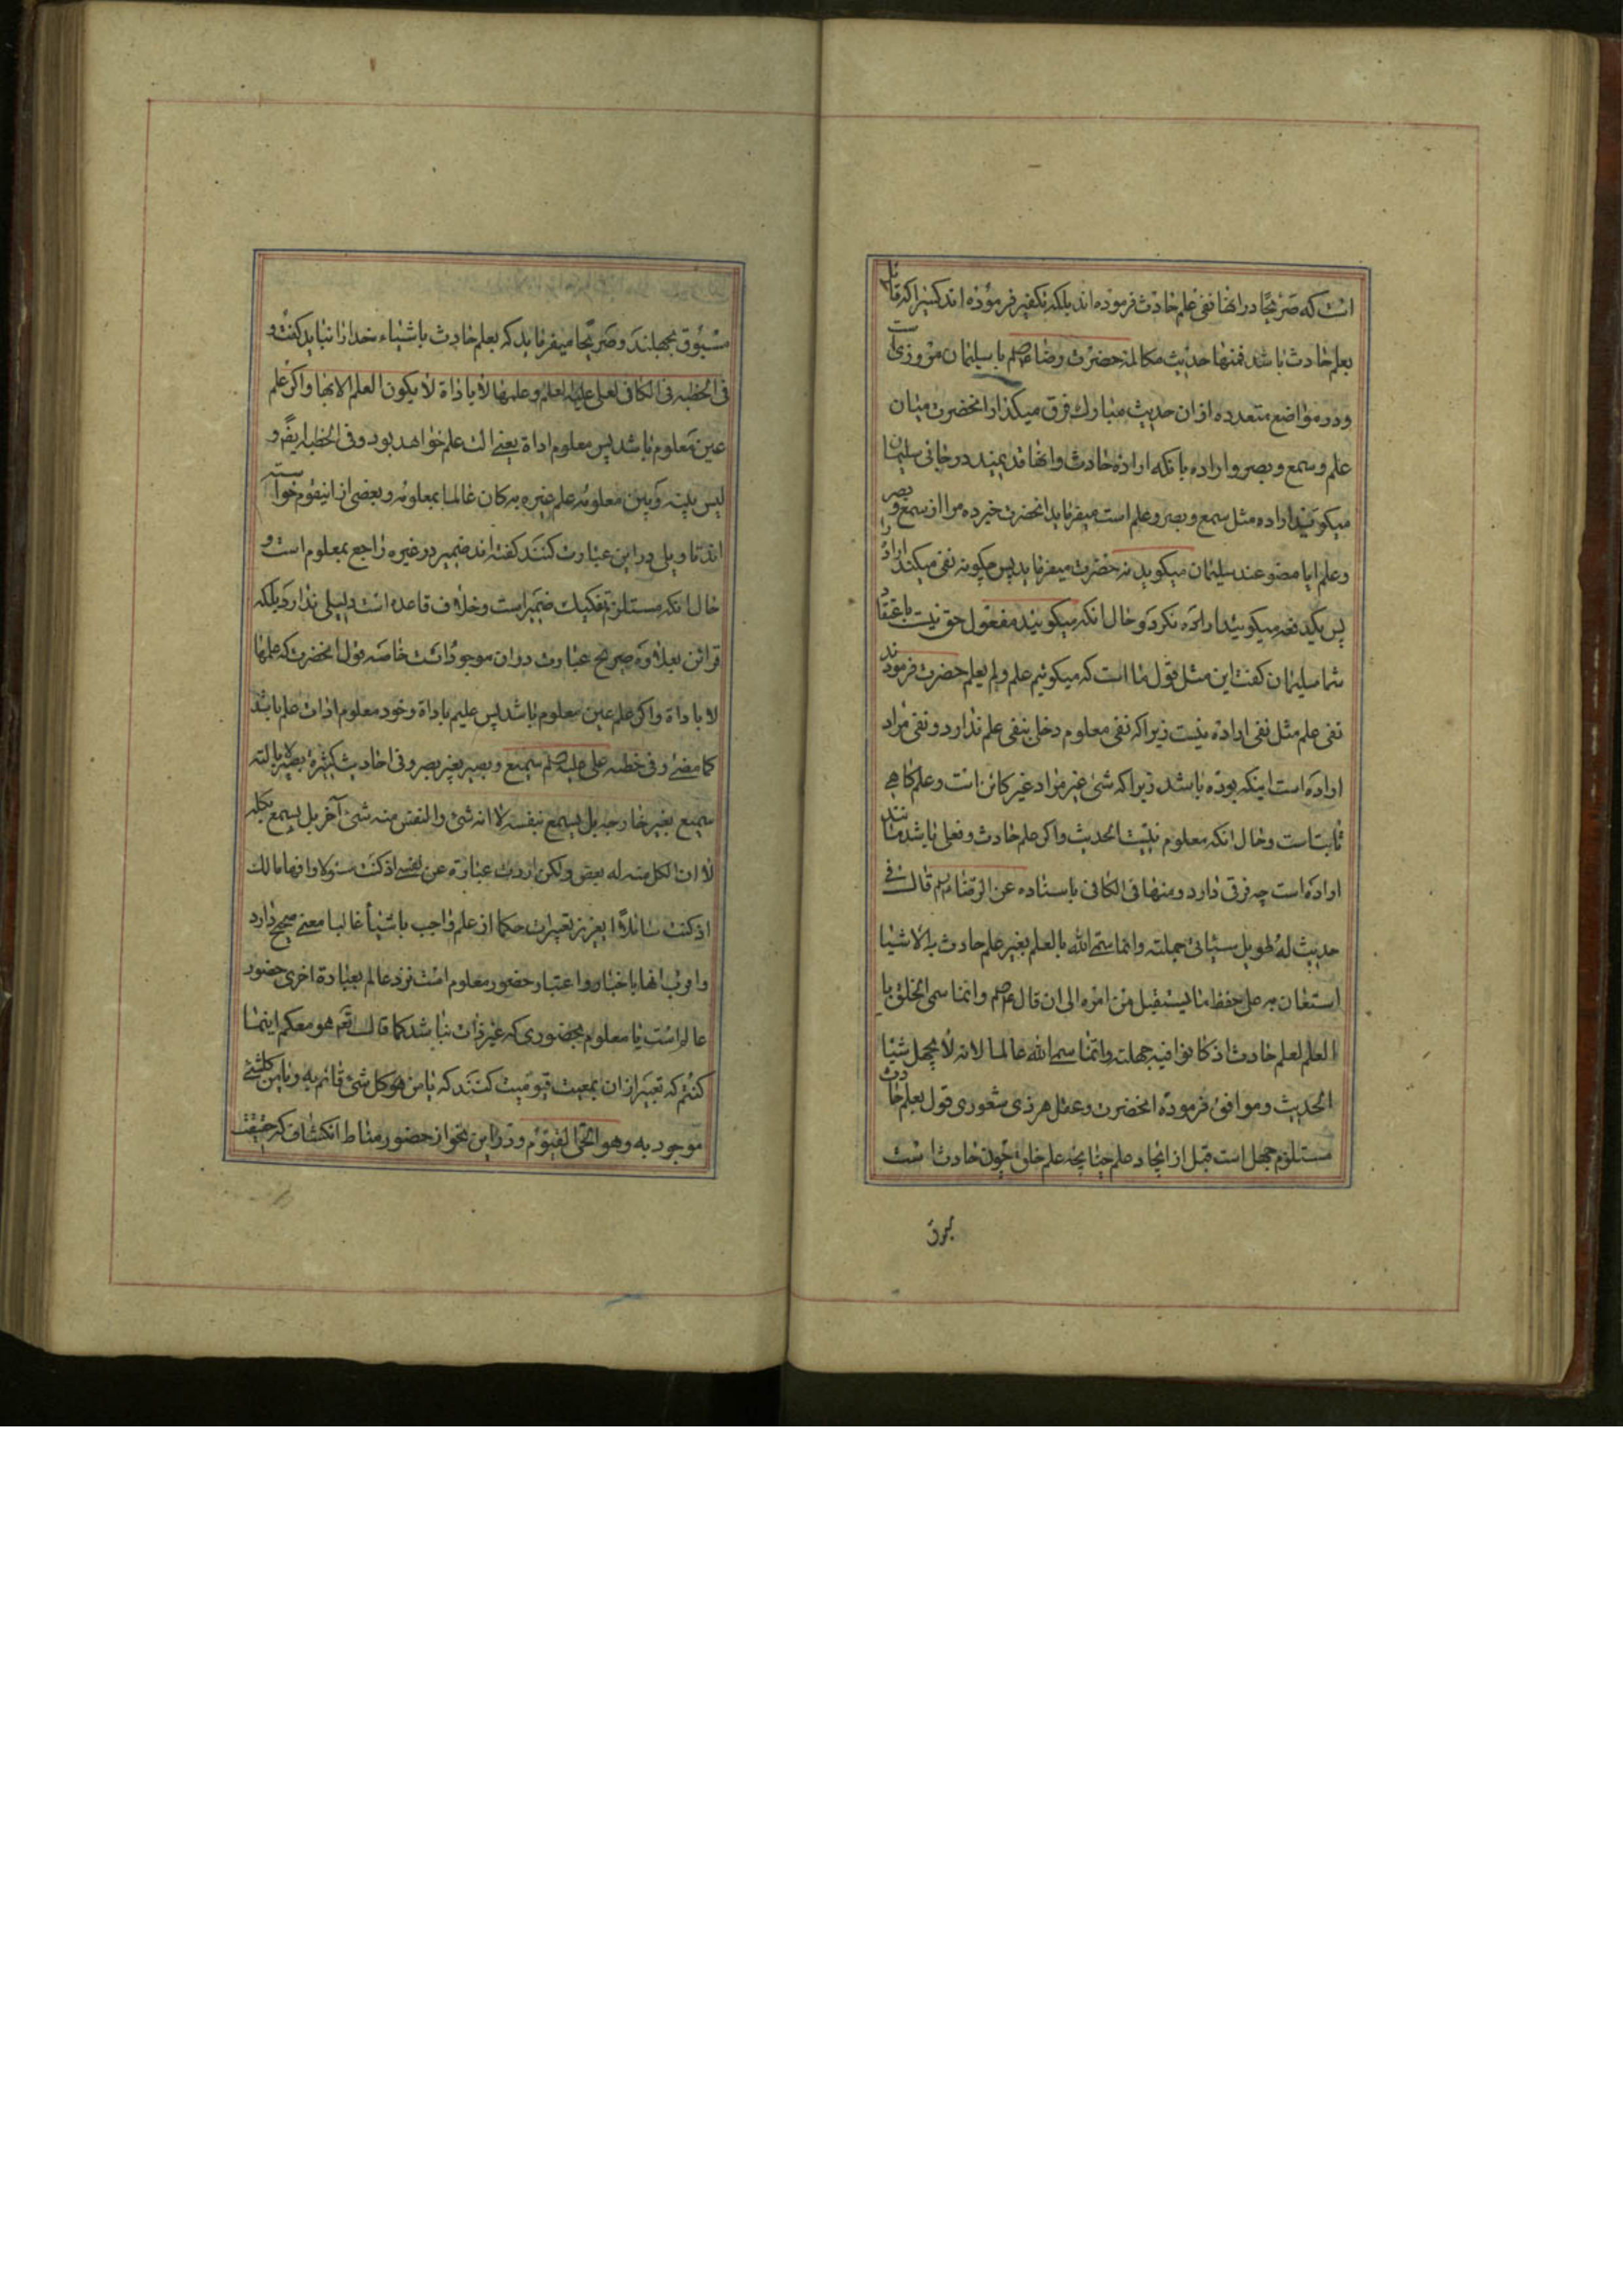 است که صریحًا در انها نفی علم حادث فرموده اند بلکه تکفیر فرموده اند کسیرا که قائل
بعلم حادث باشد فمنها حدیث مکالمه حضرت رضا با سلیمان مروزی است
ودر مواضع متعدده از ان حدیث مبارک فرق میگذارد انحضرت میان
علم وسمع وبصر واراده بانکه اراده حادث وانها قدیمند در جائی سلیمان
میکوید اراده مثل سمع وبصر وعلم است میفرماید انحضرت خبر ده مرا از سمع وبصر
وعلم ایا مصنوعند سلیمان میکوید نه حضرت میفرماید پس چکونه نفی میکنید اراده را
پس یکدفعه میکوئید اراده نکرد وحال انکه میکوئید مفعول حق نیست باعتقاد
شما سلیمان کفت این مثل قول ما است که میکوئیم علم ولم یعلم حضرت فرمودند
نفی علم مثل نفی اراده نیست زیرا که نفی معلوم دخلی بنفی علم ندارد ونفی مراد
اراده است اینکه بوده باشد زیرا که شیٔ غیر مراد غیر کائن است وعلم کاهی
ثابتست وحال انکه معلوم نیست الحدیث واکر علم حادث وفعلی باشد مانند
اراده است چه فرق دارد ومنها فی الکافی باسناده عن الرضا قال فی
حدیث له طویل سیٔاتی جملته وانما سمی الله بالعلم بغیر علم حادث به الاشیا
استعان به علی حفظ ما یستقبل من امره الی ان قال وانما سمی الخلق با
العلم لعلم حادث اذ کانوا فیه جهلة وانما سمی الله عالما لانه لا یجهل شیئا
الحدیث وموافق فرموده انحضرت وعقل هر ذی شعوری قول بعلم حادث
مستلزم جهل است قبل از ایجاد علم چنانچه علم خلق چون حادث است
مسبوق بجهلند وصریحًا میفرماید که بعلم حادث باشیاء خدا را نباید کفت و
فی الخطبه فی الکافی لعلی وعلمها لا باداة لا یکون العلم الا بها واکر علم
عین معلوم باشد پس معلوم اداة یعنی الت علم خواهد بود وفی الخطبه ایضًا و
لیس بینه وبین معلومه علم غیره به کان عالما بمعلومه وبعضی از اینقوم خواسته
اند تاویلی در این عبارت کنند کفته اند ضمیر در غیره راجع بمعلوم است و
حال انکه مستلزم تفکیک ضمیر است وخلاف قاعده است دلیلی ندارد بلکه
قرائن بعلاوه صریح عبارت در ان موجود است خاصه قول انحضرت که علمها
لا باداة واکر علم عین معلوم باشد پس علیم باداة وخود معلوم ادات علم باشد
کما مضیٰ وفی خطبه علی سمیع وبصیر بغیر بصر وفی احادیث کثیرة بصیر لا بالة
سمیع بغیر جارحة بل یسمع بنفسه لا انه شیٔ والنفس منه شیٔ آخر بل یسمع بکله
لا ان الکل منه له بعض ولکن اردت عبارة عن نفسی اذ کنت مسئولا وافهاما لک
اذ کنت سائلًا ایعزیز تعبیرات حکما از علم واجب باشیأ غالبا معنی صحیح دارد
واقرب انها باخبار واعتبار حضور معلوم است نزد عالم بعبارة اخری حضور
عالم است با معلوم بحضوری که غیر ذات نباشد کما قال تعم هو معکم اینما
کنتم که تعبیر از ان بمعیت قیومیت کنند که یا من هو کل شیٔ قائم به ویا من کلشیٔ
موجود به وهو الحی القیوم ودر این نحو از حضور مناط انکشاف که حقیقت